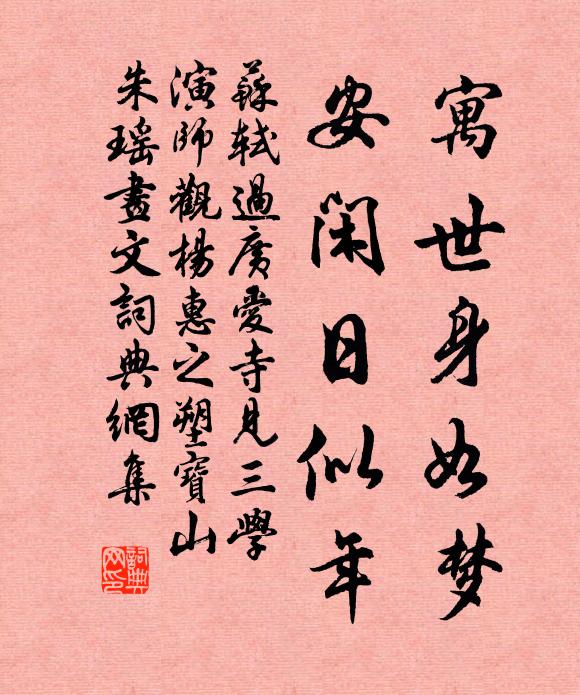 寓世身如梦
安闲日似年
蘇軾過廣愛寺見三學
演師觀楊惠之塑寶山
朱瑶畫文詞典網集
詞典
网印